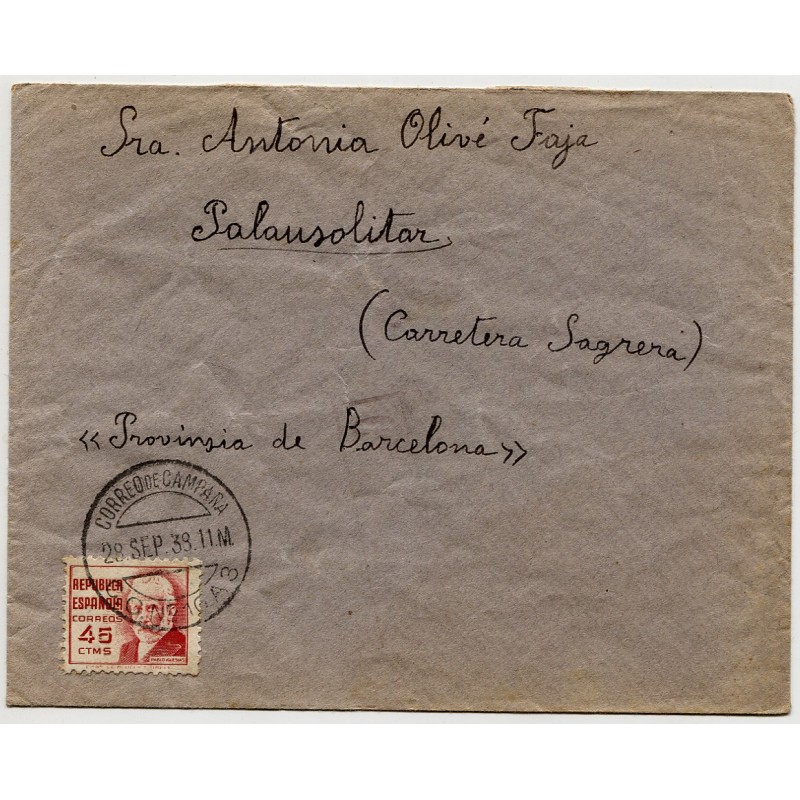 Sra. Antonia Olivé Faja
Palausolitar,
(Carretera Sagrera)
«Provinsia de Barcelona»
CORREO DE CAMPAÑA
28 SEP. 38. 11 M.
REPUBLICA
ESPAÑOLA
CORREOS
45
CTMS
PABLO IGLESIAS